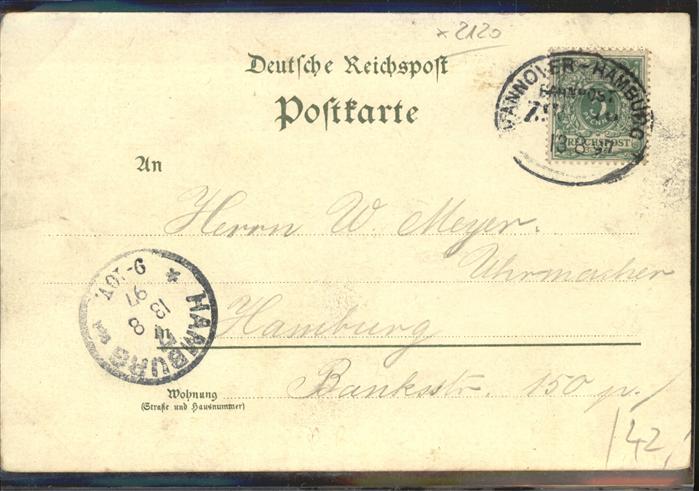 × 2120
Deutsche Reichspost
Postkarte
HANNOVER - HAMBURG
BAHNPOST
13.8.97
REICHSPOST
An
Herrn W. Meyer.
Uhrmacher
in Hamburg
HAMBURG
13 8 97
9-10V.
Banksstr. 150 p./
Wohnung
(Straße und Hausnummer)
42